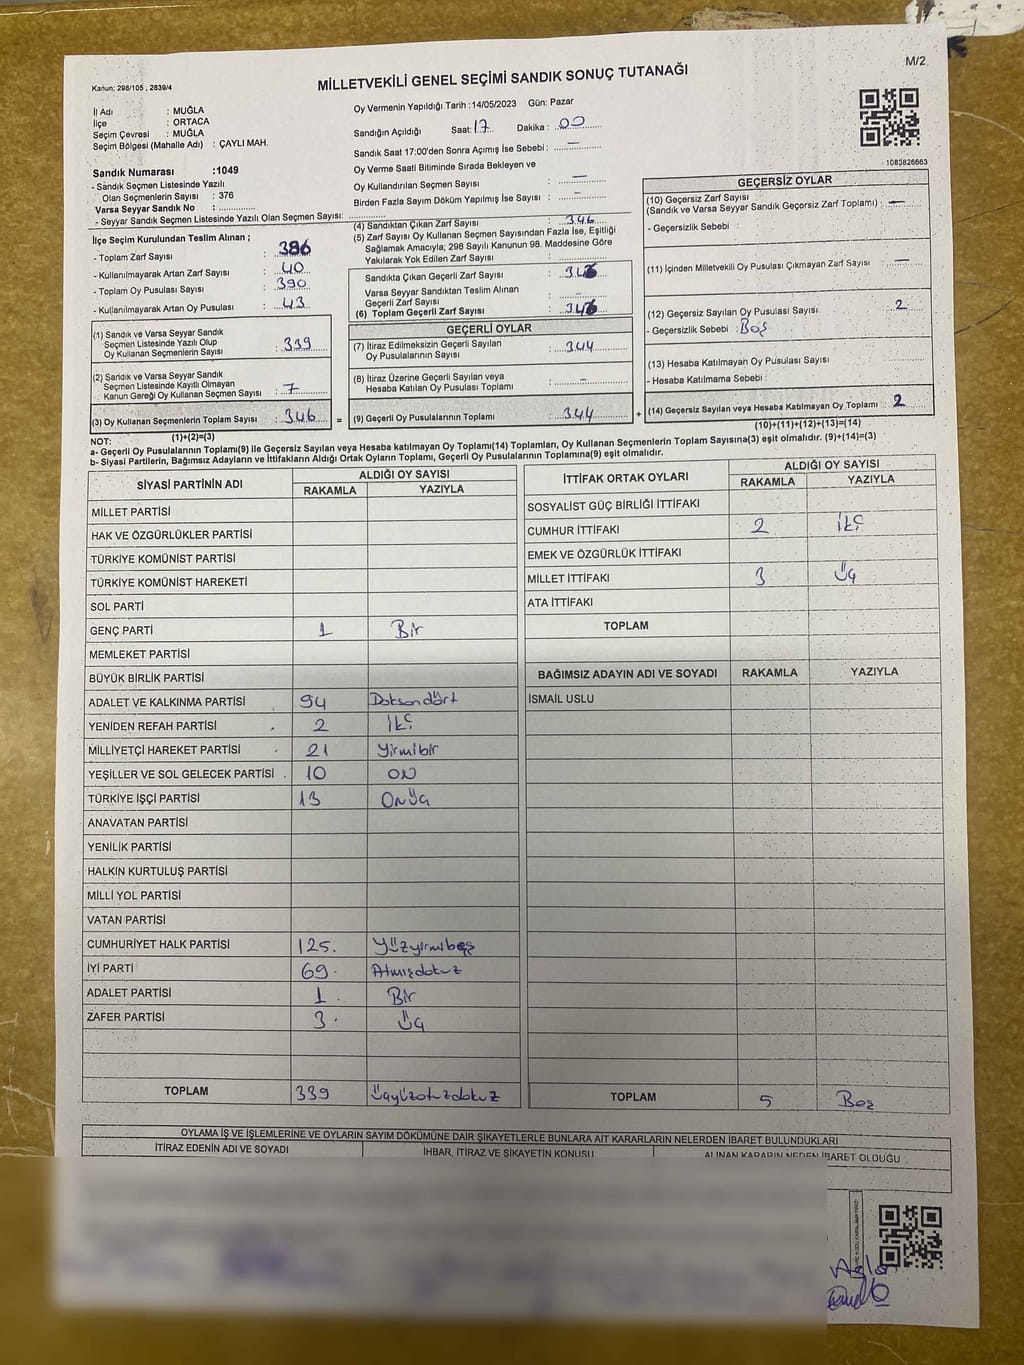 M/2
Kanun; 298/105 , 2839/4
MİLLETVEKİLİ GENEL SEÇİMİ SANDIK SONUÇ TUTANAĞI
İl Adı : MUĞLA
İlçe : ORTACA
Seçim Çevresi : MUĞLA
Seçim Bölgesi (Mahalle Adı) : ÇAYLI MAH.
Oy Vermenin Yapıldığı Tarih :14/05/2023 Gün: Pazar
Sandığın Açıldığı Saat: 17 Dakika : 00
Sandık Saat 17:00'den Sonra Açılmış İse Sebebi : —
Oy Verme Saati Bitiminde Sırada Bekleyen ve
Oy Kullandırılan Seçmen Sayısı : —
Birden Fazla Sayım Döküm Yapılmış İse Sayısı : -
1083826663
Sandık Numarası :1049
- Sandık Seçmen Listesinde Yazılı
Olan Seçmenlerin Sayısı : 376
Varsa Seyyar Sandık No :
- Seyyar Sandık Seçmen Listesinde Yazılı Olan Seçmen Sayısı:
İlçe Seçim Kurulundan Teslim Alınan ;
- Toplam Zarf Sayısı : 386
- Kullanılmayarak Artan Zarf Sayısı : 40
- Toplam Oy Pusulası Sayısı : 390
- Kullanılmayarak Artan Oy Pusulası : 43
(1) Sandık ve Varsa Seyyar Sandık
Seçmen Listesinde Yazılı Olup
Oy Kullanan Seçmenlerin Sayısı : 339
(2) Sandık ve Varsa Seyyar Sandık
Seçmen Listesinde Kayıtlı Olmayan
Kanun Gereği Oy Kullanan Seçmen Sayısı : 7
(3) Oy Kullanan Seçmenlerin Toplam Sayısı : 346 =
(1)+(2)=(3)
(4) Sandıktan Çıkan Zarf Sayısı : 346
(5) Zarf Sayısı Oy Kullanan Seçmen Sayısından Fazla İse, Eşitliği
Sağlamak Amacıyla; 298 Sayılı Kanunun 98. Maddesine Göre
Yakılarak Yok Edilen Zarf Sayısı :
Sandıkta Çıkan Geçerli Zarf Sayısı : 346
Varsa Seyyar Sandıktan Teslim Alınan
Geçerli Zarf Sayısı : -
(6) Toplam Geçerli Zarf Sayısı : 346
GEÇERLİ OYLAR
(7) İtiraz Edilmeksizin Geçerli Sayılan
Oy Pusulalarının Sayısı : 344
(8) İtiraz Üzerine Geçerli Sayılan veya
Hesaba Katılan Oy Pusulası Toplamı : -
(9) Geçerli Oy Pusulalarının Toplamı : 344 +
GEÇERSİZ OYLAR
(10) Geçersiz Zarf Sayısı
(Sandık ve Varsa Seyyar Sandık Geçersiz Zarf Toplamı) : —
- Geçersizlik Sebebi :
(11) İçinden Milletvekili Oy Pusulası Çıkmayan Zarf Sayısı : —
(12) Geçersiz Sayılan Oy Pusulası Sayısı : 2
- Geçersizlik Sebebi : Boş
(13) Hesaba Katılmayan Oy Pusulası Sayısı :
- Hesaba Katılmama Sebebi :
(14) Geçersiz Sayılan veya Hesaba Katılmayan Oy Toplamı : 2
(10)+(11)+(12)+(13)=(14)
NOT:
a- Geçerli Oy Pusulalarının Toplamı(9) İle Geçersiz Sayılan veya Hesaba katılmayan Oy Toplamı(14) Toplamları, Oy Kullanan Seçmenlerin Toplam Sayısına(3) eşit olmalıdır. (9)+(14)=(3)
b- Siyasi Partilerin, Bağımsız Adayların ve İttifakların Aldığı Ortak Oyların Toplamı, Geçerli Oy Pusulalarının Toplamına(9) eşit olmalıdır.
SİYASİ PARTİNİN ADI ALDIĞI OY SAYISI
RAKAMLA YAZIYLA
MİLLET PARTİSİ
HAK VE ÖZGÜRLÜKLER PARTİSİ
TÜRKİYE KOMÜNİST PARTİSİ
TÜRKİYE KOMÜNİST HAREKETİ
SOL PARTİ
GENÇ PARTİ 1 Bir
MEMLEKET PARTİSİ
BÜYÜK BİRLİK PARTİSİ
ADALET VE KALKINMA PARTİSİ 94 Doksandört
YENİDEN REFAH PARTİSİ 2 İki
MİLLİYETÇİ HAREKET PARTİSİ 21 Yirmibir
YEŞİLLER VE SOL GELECEK PARTİSİ 10 ON
TÜRKİYE İŞÇİ PARTİSİ 13 Onüç
ANAVATAN PARTİSİ
YENİLİK PARTİSİ
HALKIN KURTULUŞ PARTİSİ
MİLLİ YOL PARTİSİ
VATAN PARTİSİ
CUMHURİYET HALK PARTİSİ 125. Yüzyirmibeş
İYİ PARTİ 69. Atmışdokuz
ADALET PARTİSİ 1. Bir
ZAFER PARTİSİ 3. Üç
TOPLAM 339 Üçyüzotuzdokuz
İTTİFAK ORTAK OYLARI ALDIĞI OY SAYISI
RAKAMLA YAZIYLA
SOSYALİST GÜÇ BİRLİĞİ İTTİFAKI
CUMHUR İTTİFAKI 2 İki
EMEK VE ÖZGÜRLÜK İTTİFAKI
MİLLET İTTİFAKI 3 Üç
ATA İTTİFAKI
TOPLAM
BAĞIMSIZ ADAYIN ADI VE SOYADI RAKAMLA YAZIYLA
İSMAİL USLU
TOPLAM 5 Beş
OYLAMA İŞ VE İŞLEMLERİNE VE OYLARIN SAYIM DÖKÜMÜNE DAİR ŞİKAYETLERLE BUNLARA AİT KARARLARIN NELERDEN İBARET BULUNDUKLARI
İTİRAZ EDENİN ADI VE SOYADI İHBAR, İTİRAZ VE ŞİKAYETİN KONUSU ALINAN KARARIN NEDEN İBARET OLDUĞU